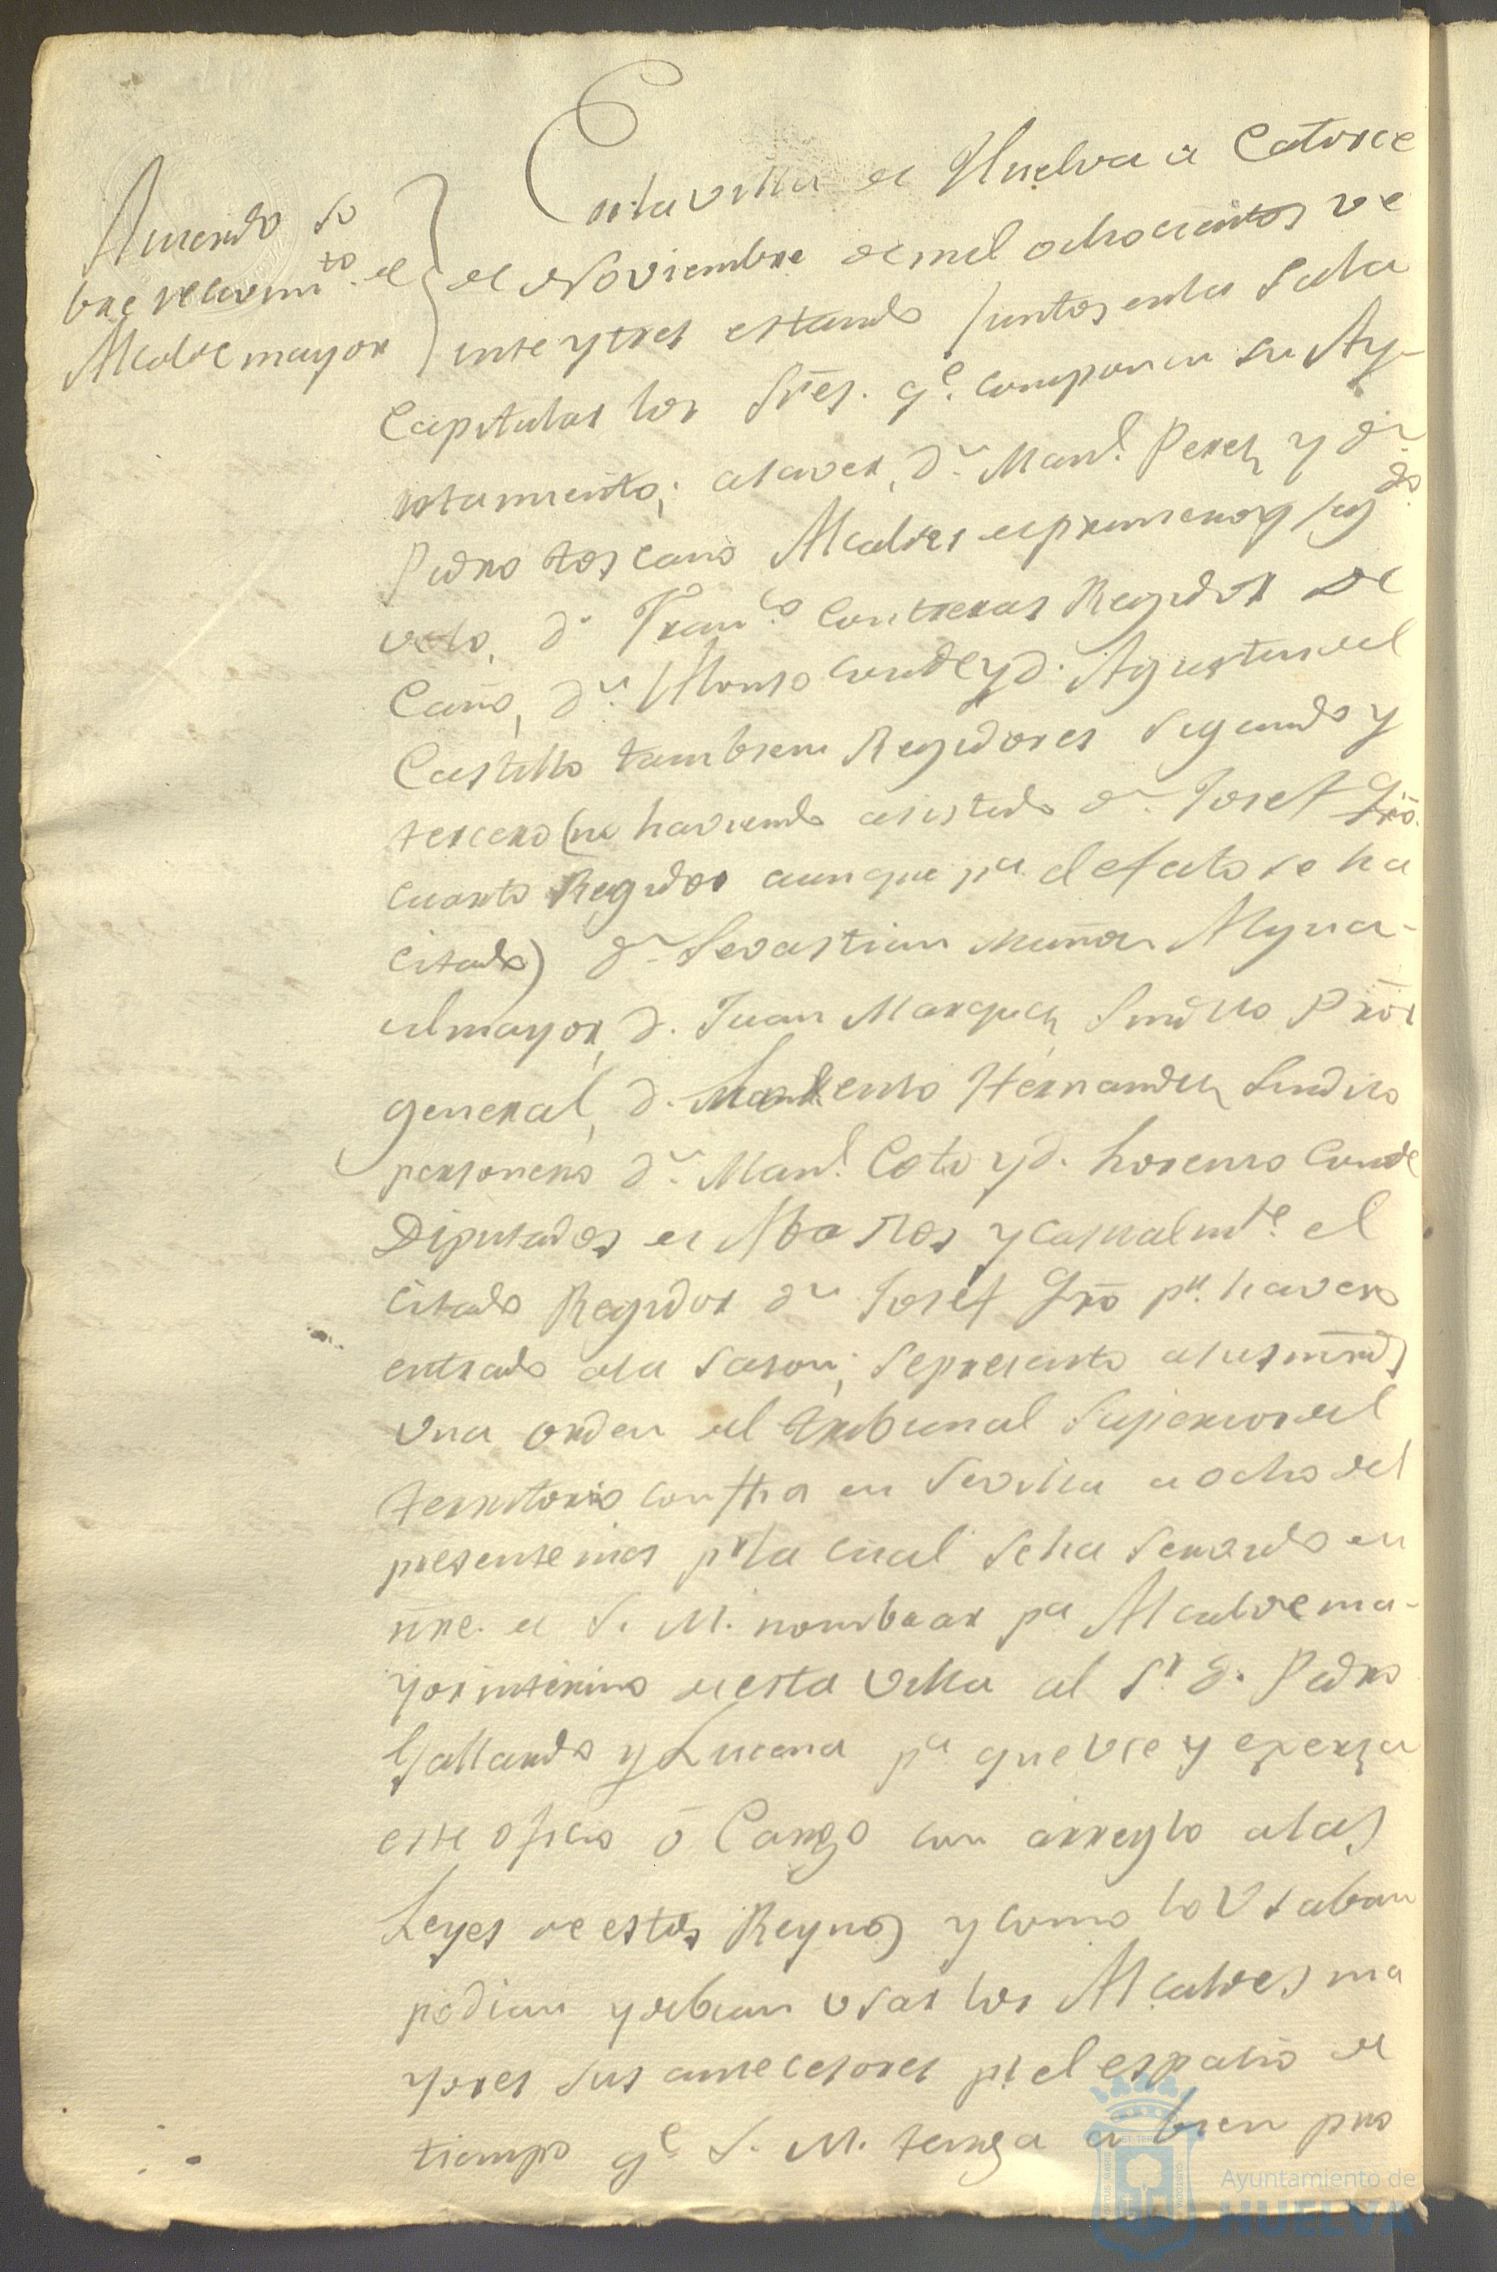 Acuerdo so
bre recivim.to de
Alcalde mayor
En la villa de Huelva a Catorce
de Noviembre de mil ochocientos ve
inte y tres estando juntos en la Sala
Capitular los Sres. q.e componen su Ay-
untamiento; a saver, D.n Man.l Perez y D.n
Pedro Toscano Alcaldes de primero y seg.do
voto, D.n Fran.co Contreras Regidor De
Cano, D.n Alonso Conde y D. Agustin del
Castillo tambien Regidores Segundo y
tercero (no haviendo asistido D.n Josef
cuarto Regidor aunque p.a el efecto se ha
citado) D.n Sevastian Muñoz Algua-
cil mayor, D. Juan Marquez Sindico Pror
general, D. Hernandez Sindico
personero D.n Man.l Coto y D. Lorenzo Conde
Diputados de Abastos y casualm.te el
citado Regidor D.n Josef p.r haver
entrado a la sazon; se presento a sus mrds
una orden del Tribunal Superior del
territorio con fha en Sevilla a ocho del
presente mes p.r la cual se ha servido en
nre. de S. M. nombrar p.a Alcalde ma-
yor interino de esta Villa al S.r D. Pedro
Gallardo y Lucena p.a que use y exerza
este oficio ó Cargo con arreglo a las
Leyes de estos Reynos y como lo Usaban
podian y debian usar los Alcaldes ma
yores sus antecesores p.r el espacio de
tiempo q.e S. M. tenga a bien pro
Ayuntamiento de
HUELVA